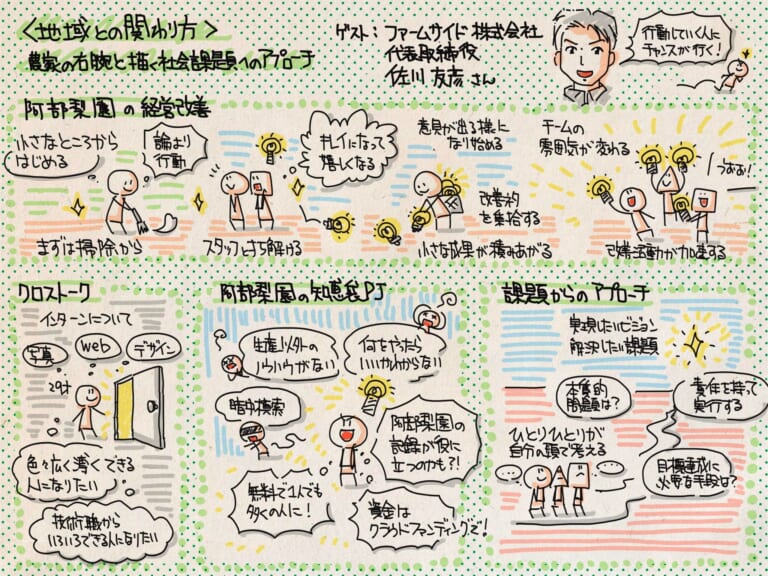 ＜地域との関わり方＞
農家の右腕と描く社会課題へのアプローチ
ゲスト：ファームサイド株式会社
代表取締役
佐川 友彦 さん
行動していく人に
チャンスが行く！
阿部梨園の経営改善
小さなところから
はじめる
論より
行動
まずは掃除から
スタッフと打ち解ける
キレイになって
嬉しくなる
意見が出る様に
なり始める
改善ネタ
を集拾する
小さな成果が積みあがる
チームの
雰囲気が変わる
うおお！
改善活動が加速する
クロストーク
インターンについて
写真
web
デザイン
29才
色々広く薄くできる
人になりたい
技術職から
いろいろできる人になりたい
阿部梨園の知恵袋PJ
生産以外の
ノウハウがない
何をやたら
いいかわからない
暗中模索
阿部梨園の
記録が役に
立つのかも?!
無料で1人でも
多くの人に！
資金は
クラウドファンディングで！
課題からのアプローチ
実現したいビジョン
解決したい課題
本質的
問題は？
責任を持って
実行する
ひとりひとりが
自分の頭で考える
目標達成に
必要な手段は？